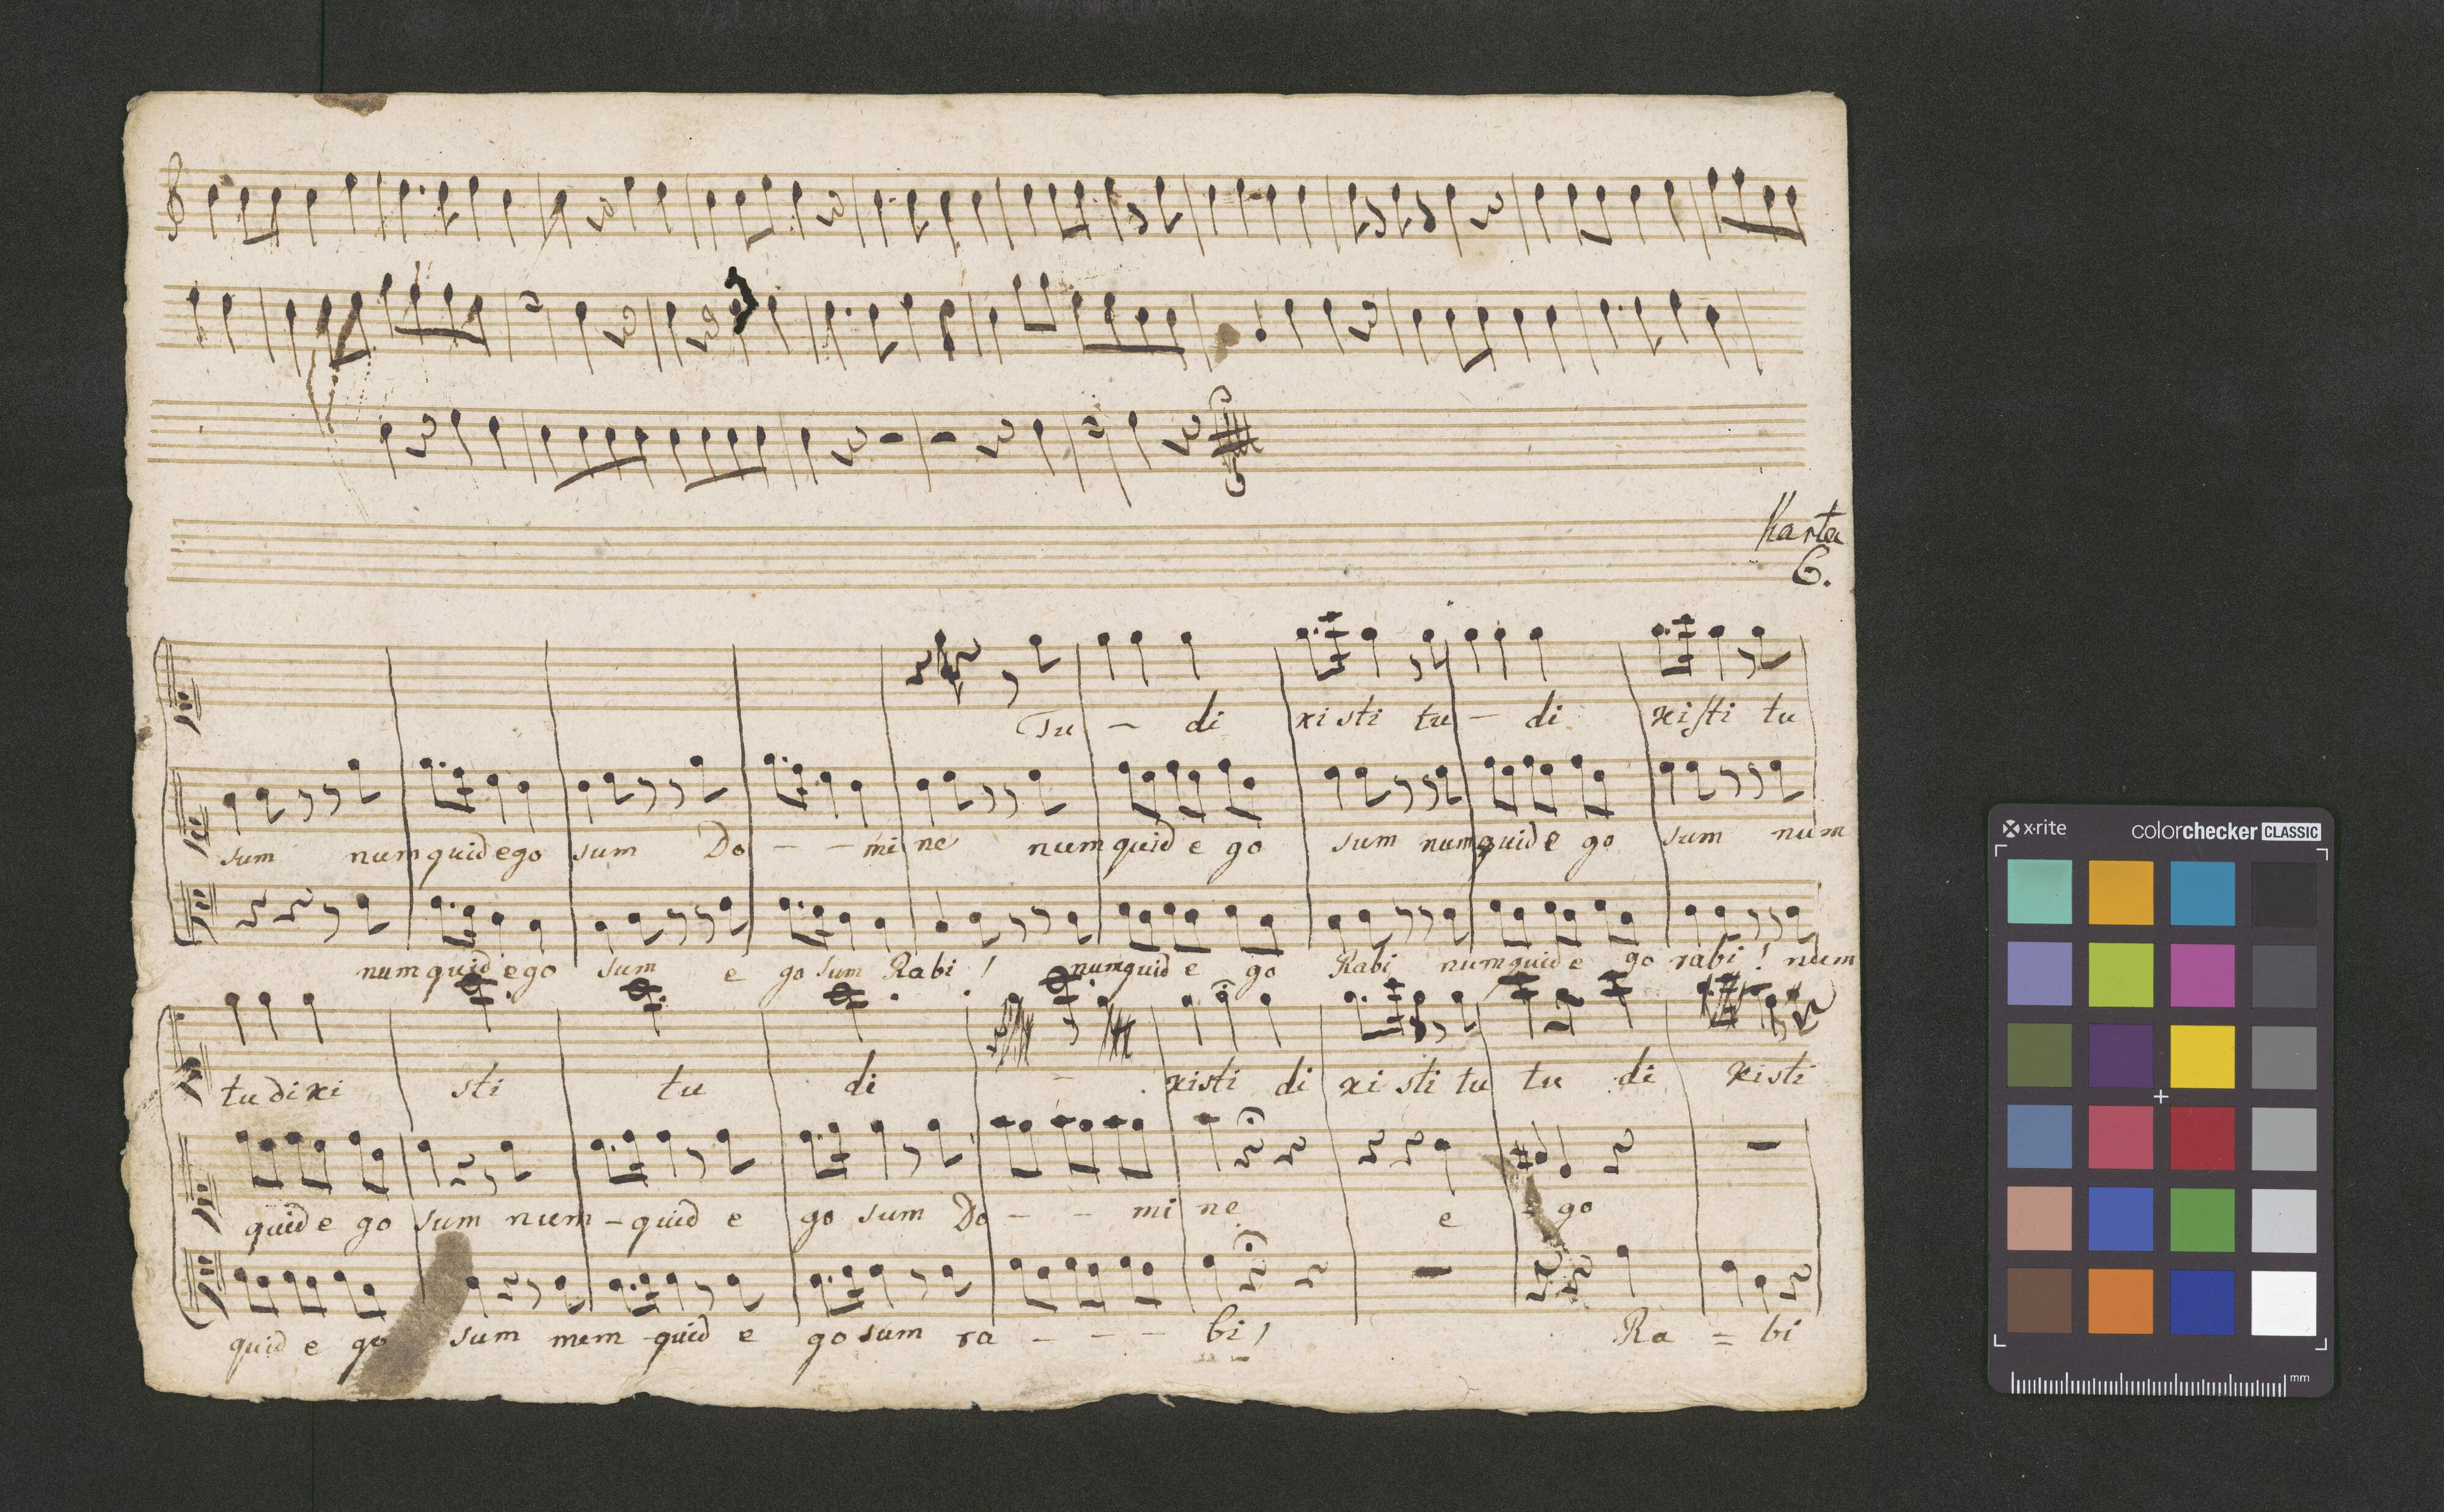 Karta
6.
Tu - di xi sti tu - di xisti tu
sum num quid ego sum Do - - mi ne num quid e go sum num quid e go sum num
num quid ego sum e go sum Rabi ! num quid e go Rabi num quid e go rabi ! num
tu di xi sti tu di - xisti di xi sti tu tu di xisti
quid e go sum num - quid e go sum Do - - mi ne e go
quid e go sum mem - quid e go sum ra - - - bi ! Ra = bi
x·rite colorchecker CLASSIC
mm